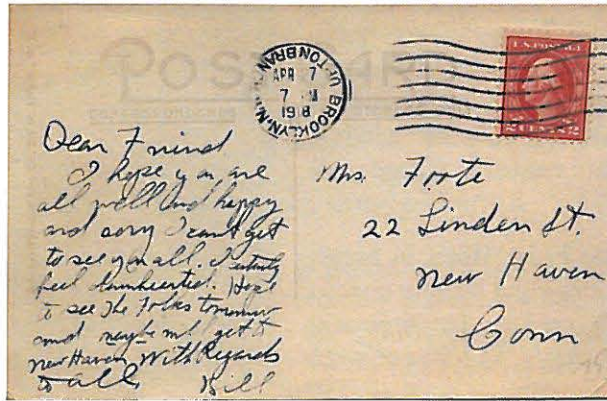 POSTCARD
BROOKLYN, N.Y.
UPTON BRANCH
APR 7
7 M
1918
U.S. POSTAGE
2 CENTS 2
Dear Friend
I hope you are
all well and happy
and sorry I cant get
to see you all. I
feel downhearted. Hope
to see the Folks tomorrow
and maybe not get to
New Haven With Regards
to all Bill
Mrs. Foote
22 Linden St.
New Haven
Conn